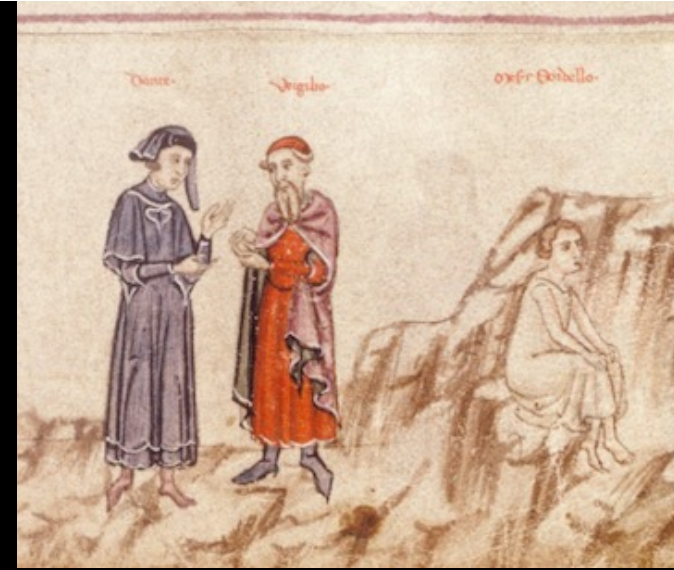 Dante· Virgilio· Sordello·